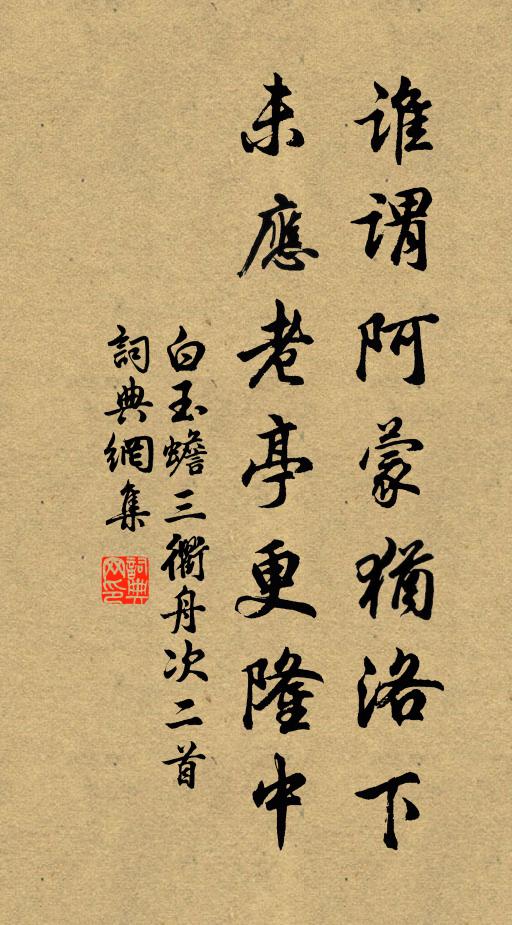 誰謂阿蒙猶洛下
未應老亭更隆中
白玉蟾三衢舟次二首
詞典網集
詞典網印